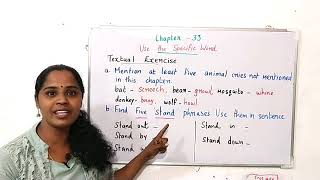 Chapter - 33
Use the Specific Word.
Textual Exercise
a. Mention at least five animal cries not mentioned
in this chapter.
bat - screech, bear - growl, mosquito - whine
donkey - bray, wolf - howl
b. Find Five 'Stand' phrases Use them in sentence
Stand out - Stand in -
Stand by Stand down -
Stand